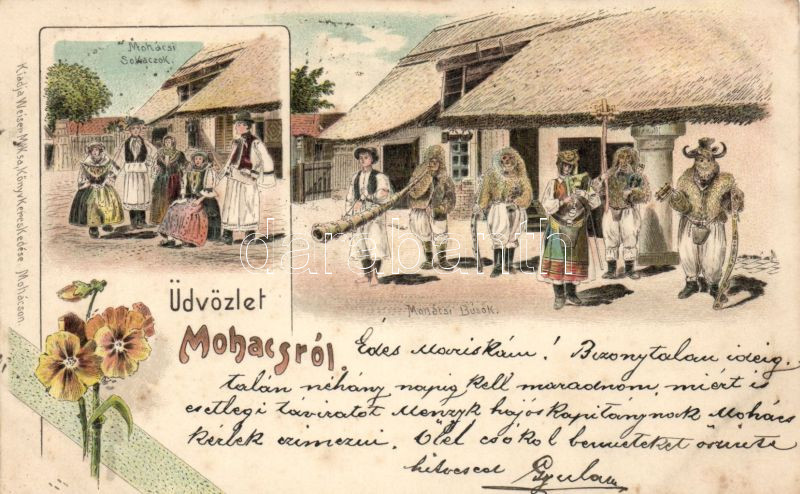 Mohácsi
Sokáczok.
Kiadja Weiser Miksa, Könyvkereskedése Mohácson.
darabanth
Mohácsi Busók.
Üdvözlet
Mohacsról.
Édes Mariskám! Bizonytalan ideig
talán néhány napig kell maradnom, miért is
esetlegi táviratot Menzyk hajóskapitánynak Mohács
kérlek czimezni. Ölel csókol benneteket
hitvesed Gyula